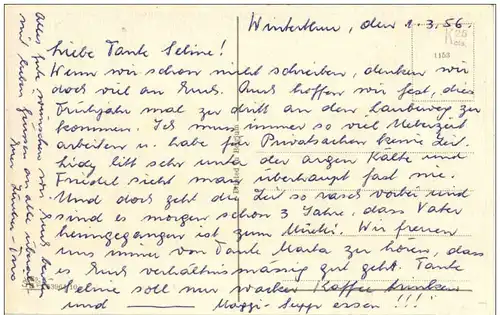 Winterthur, den 1.3.56.
Liebe Tante Seline!
Wenn wir schon nicht schreiben, denken wir
doch viel an Euch. Auch hoffen wir fest, dies
Frühjahr mal zu dritt an den Laubeweg zu
kommen. Ich muss immer so viel Ueberzeit
arbeiten u. habe für Privatsachen keine Zeit.
Hedy litt sehr unter der argen Kälte und
Friedel sieht man überhaupt fast nie.
Und doch geht die Zeit so rasch vorbei und
sind es morgen schon 3 Jahre, dass Vater
heimgegangen ist zum Mueti. Wir freuen
uns immer von Tante Marta zu hören, dass
es Euch verhältnismässig gut geht. Tante
Seline soll nur wacker Kaffee trinken
und Maggi-Suppe essen!!!
Alles Gute wünschen wir Euch beiden
mit lieben Grüssen an alle
K 25
cts.
1153